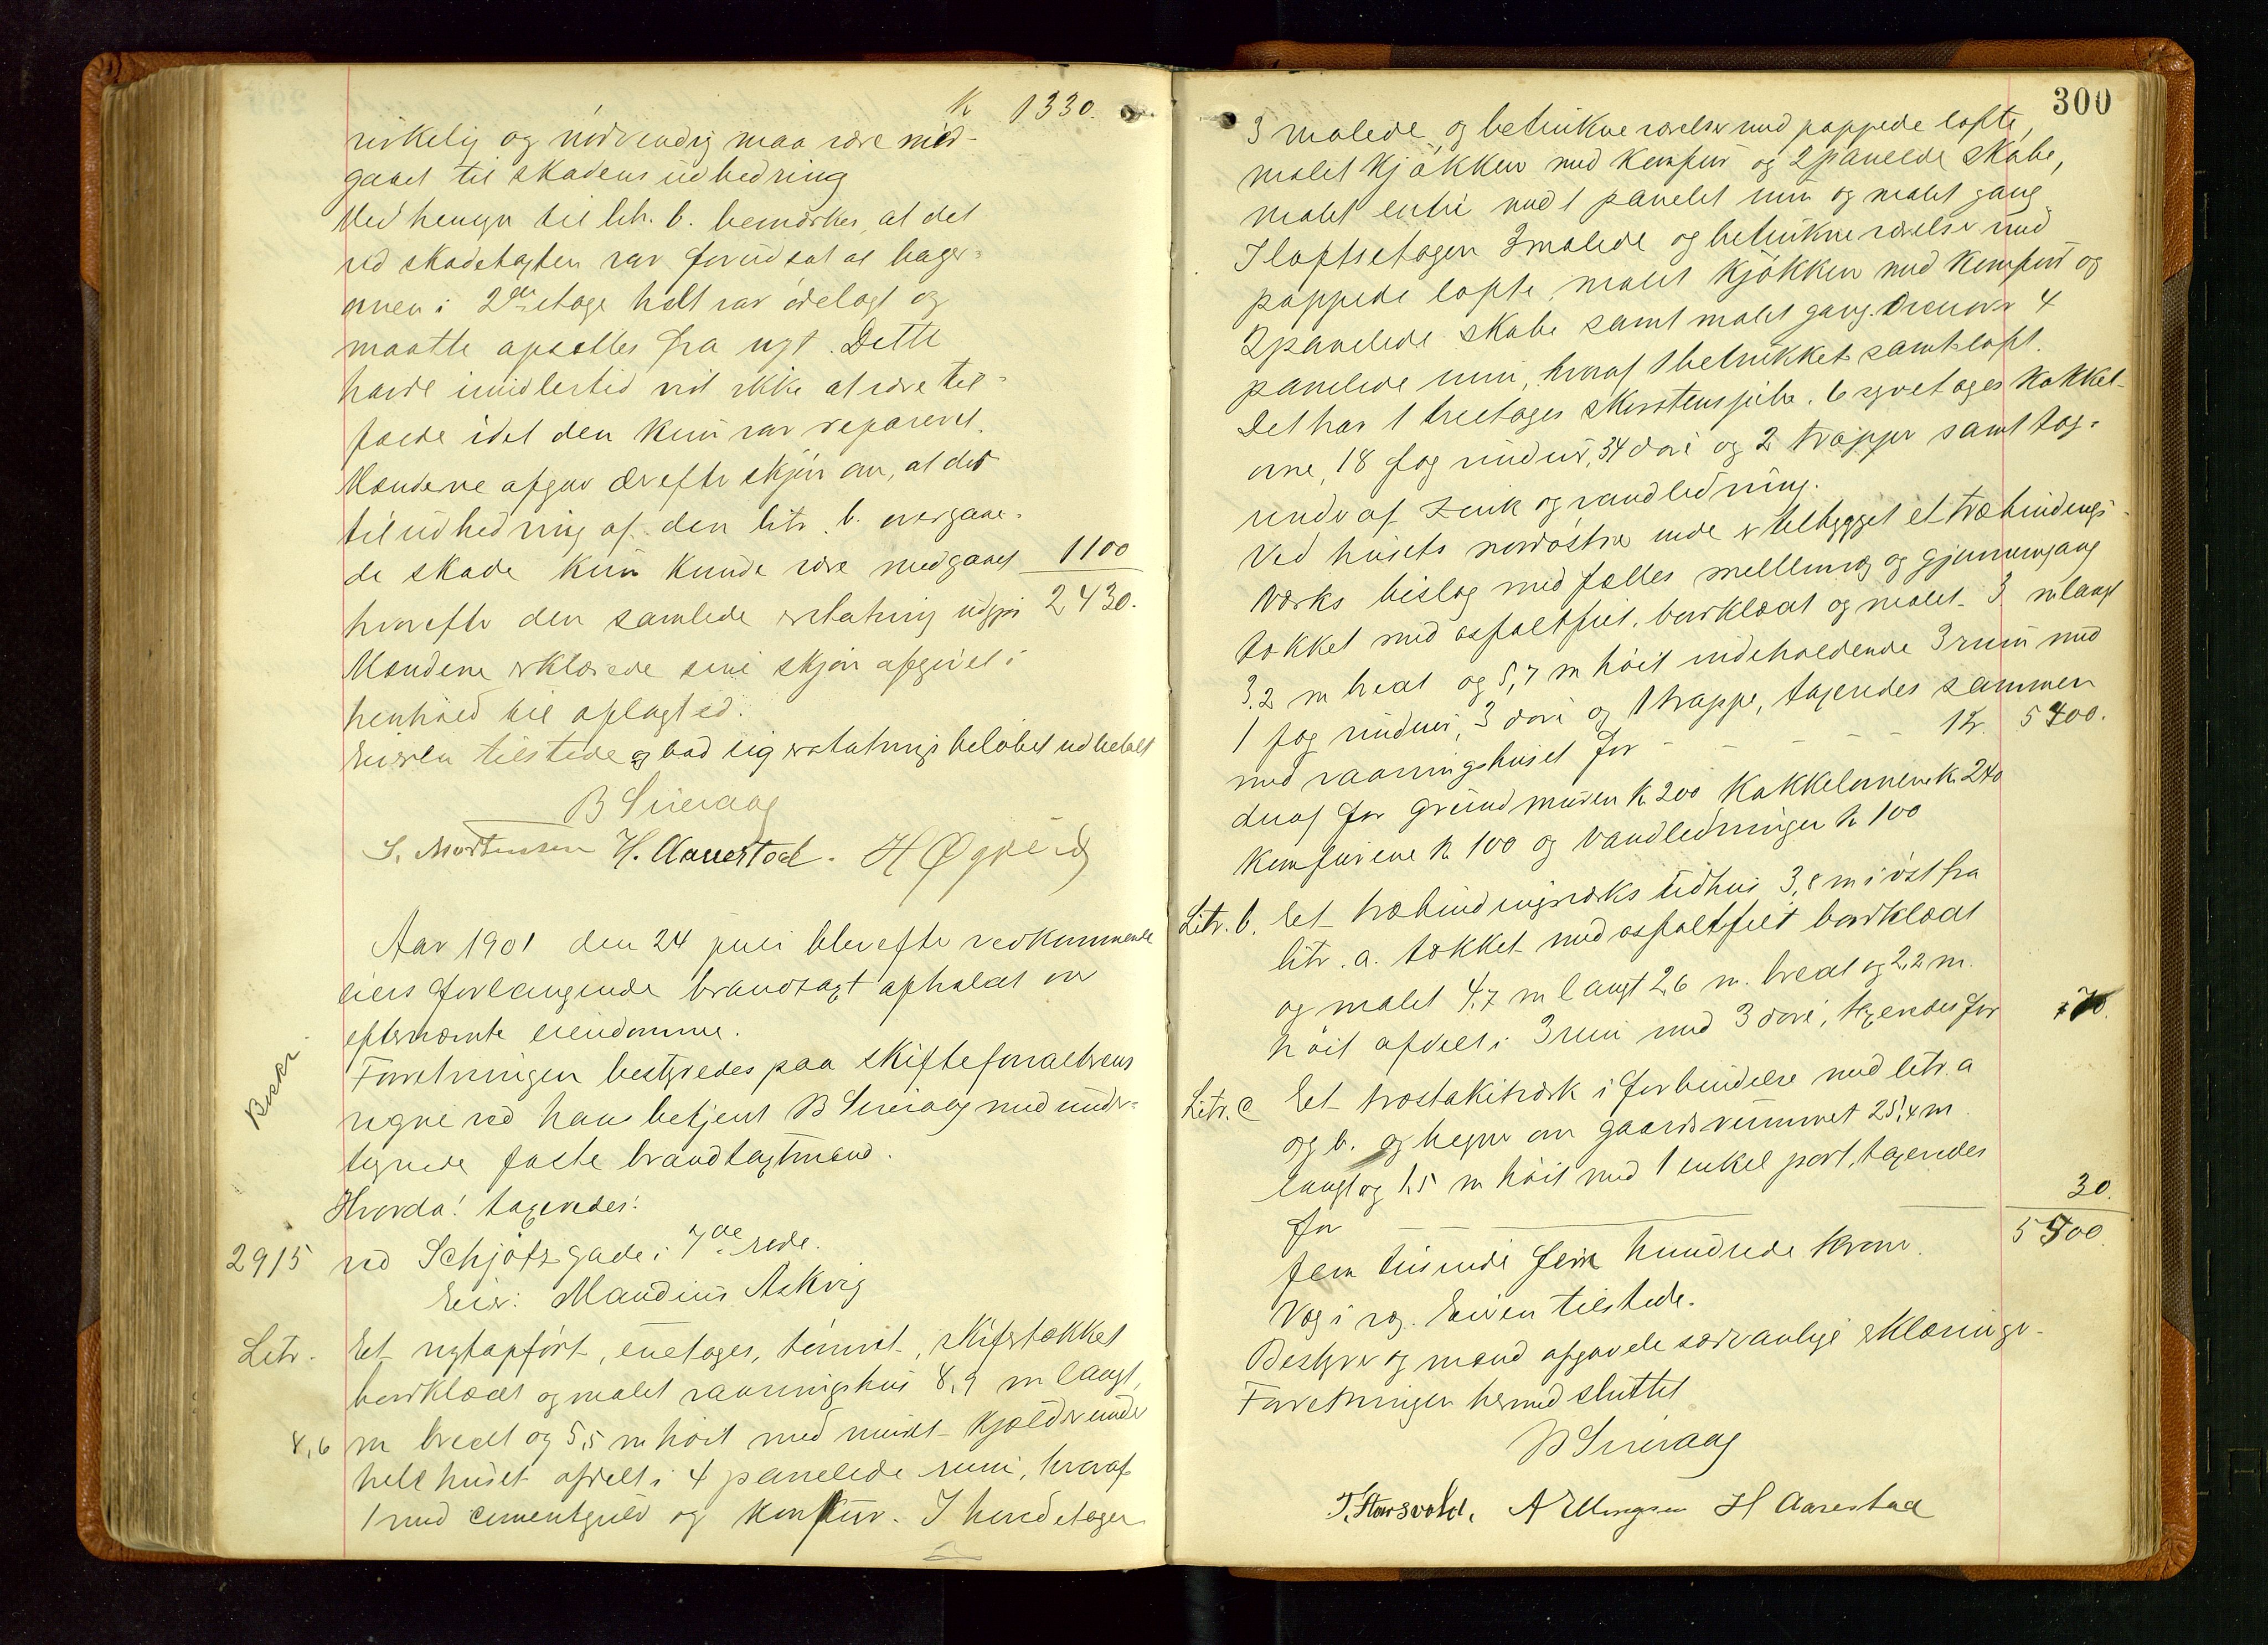 K 1330.
virkelig og nødvendig maa være med-
gaaet til skadens udbedring
Ved hensyn til litr. b. bemærkes, at det
ved skadetaxten var forudsat at bager-
ovnen i 2den etage helt var ødelagt og
maatte opsættes fra nyt. Dette
havde imidlertid vist ikke at være til-
fælde idet den kun var repareret.
Mændene afgav derefter skjøn om, at det
til udbedring af den litr. b. overgaae-
de skade kun kunde være medgaaet 1100
hvorefter den samlede erstatning udgjør 2430.
Mændene erklærede sine skjøn afgivet i
henhold til aflagt ed.
Eieren tilstede og bad sig erstatningsbeløbet udbetalt
B Sireraag
S. Mortensen H. Aarestad. H Øgreid
Aar 1901 den 24 juli blev efter vedkommende
eiers forlangende brandtaxt afholdt over
efternævnte eiendomme.
Forretningen bestyredes paa skifteforvalterens
vegne ved hans betjent B Sireraag med under-
tegnede faste brandtaxtmænd.
Hvorda! taxeredes:
Beskr.
2915 ved Schjøtzgade i 7de rode.
Eier: Maudius Askvig
Litr. Et nytopført, enetages, tømret, skifertækket
bordklædt og malet vaaningshus 8,9 m langt,
8,6 m bredt og 5,5 m høit med muret kjælder under
hele huset afdelt i 4 panelede rum, hvoraf
1 med cementgulv og komfur. I hovedetagen
300
3 malede og betrukne værelser med pappede lofte,
malet kjøkken med komfur og 2 panelde skabe,
malet entré med 1 panelet rum og malet gang.
I loftsetagen 3 malede og betrukne værelser med
pappede lofte, malet kjøkken med komfur og
2 panelede skabe samt malet gang. Derover 4
panelede rum, hvoraf 1 betrukket samt loft.
Det har 1 treetages skorstenspibe. 6 syvetages kakkel-
ovne, 18 fag vinduer, 34 døre og 2 trapper samt tag-
render af zink og vandledning.
Ved husets nordøstre ende er tilbygget et træbindings-
værks bislag med fælles mellemvæg og gjennemgang
tækket med asfaltfilt, bordklædt og malet. 3 m langt
3,2 m bredt og 5,7 m høit indeholdende 3 rum med
1 fag vinduer, 3 døre og 1 trappe, taxeredes sammen
med vaaningshuset for - - - - - - kr. 5400.
deraf for grundmuren k. 200 kakkelovnene k. 240
komfurene k. 100 og vandledningen k. 100
Litr. b. Et træbindingsværks udhus 3,8 m i øst fra
litr. a. tækket med asfaltfilt bordklædt
og malet 4,7 m langt 2,6 m. bredt og 2,2 m.
høit afdelt i 3 rum med 3 døre, taxeredes for 70.
Litr. c Et træstakitværk i forbindelse med litr. a
og b. og hegner om gaardsrummet 25,4 m
langt og 1,5 m høit med 1 enkel port, taxeredes
for 30.
5500.
fem tusinde fem hundrede kroner.
Væg i væg. Eieren tilstede.
Bestyrer og mænd afgav de sædvanlige erklæringer.
Forretningen hermed sluttet
B Sireraag
T. Horsvold. A Ellingsen H Aarestad